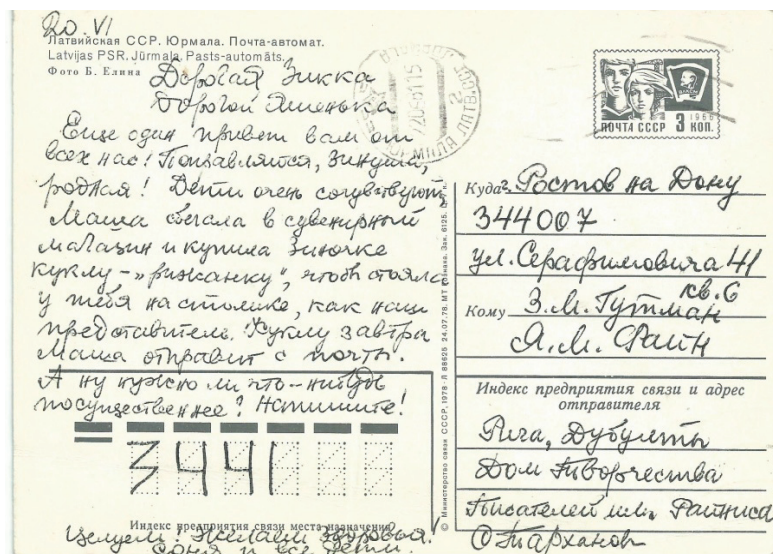 20.VI
Латвийская ССР. Юрмала. Почта-автомат.
Latvijas PSR. Jūrmala. Pasts-automāts.
Фото Б. Елина
Дорогая Зикка
Дорогой Яшенька
Еще один привет вам от
всех нас! Поправляйся, Зинуша,
родная! Дети очень сочувствуют
Маша бегала в сувенирный
магазин и купила Зиночке
куклу-„рижанку", чтоб стояла
у тебя на столике, как наш
представитель. Куклу завтра
Маша отправит с почты.
А ну нужно ли что-нибудь
посущественнее? Напишите!
3441
Индекс предприятия связи места назначения
Целуем! Желаем здоровья.
Соня и все дети.
© Министерство связи СССР, 1978
24.07.78
ПОЧТА СССР 3 КОП.
1966
ВЛКСМ
Куда г. Ростов на Дону
344007
ул. Серафимовича 41
кв. 6
Кому З.М. Гутман
Я.М. Файн
Индекс предприятия связи и адрес
отправителя
Рига, Дубулты
Дом Творчества
Писателей им. Райниса
О Тарханов